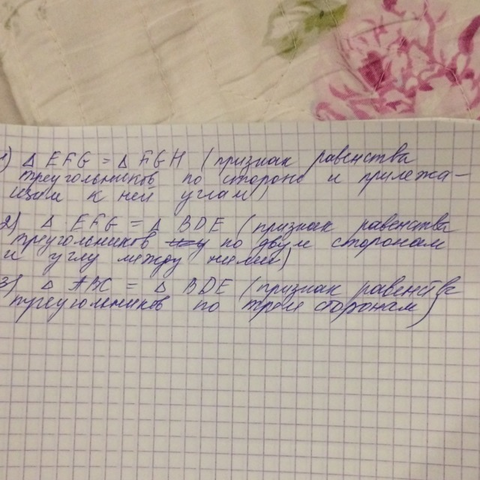 1) △ EFG = △ FGH (признак равенства
треугольников по стороне и прилежа-
щим к ней углам)
2) △ EFG = △ BDE (признак равенства
треугольников по двум сторонам
и углу между ними)
3) △ ABC = △ BDE (признак равенства
треугольников по трем сторонам)